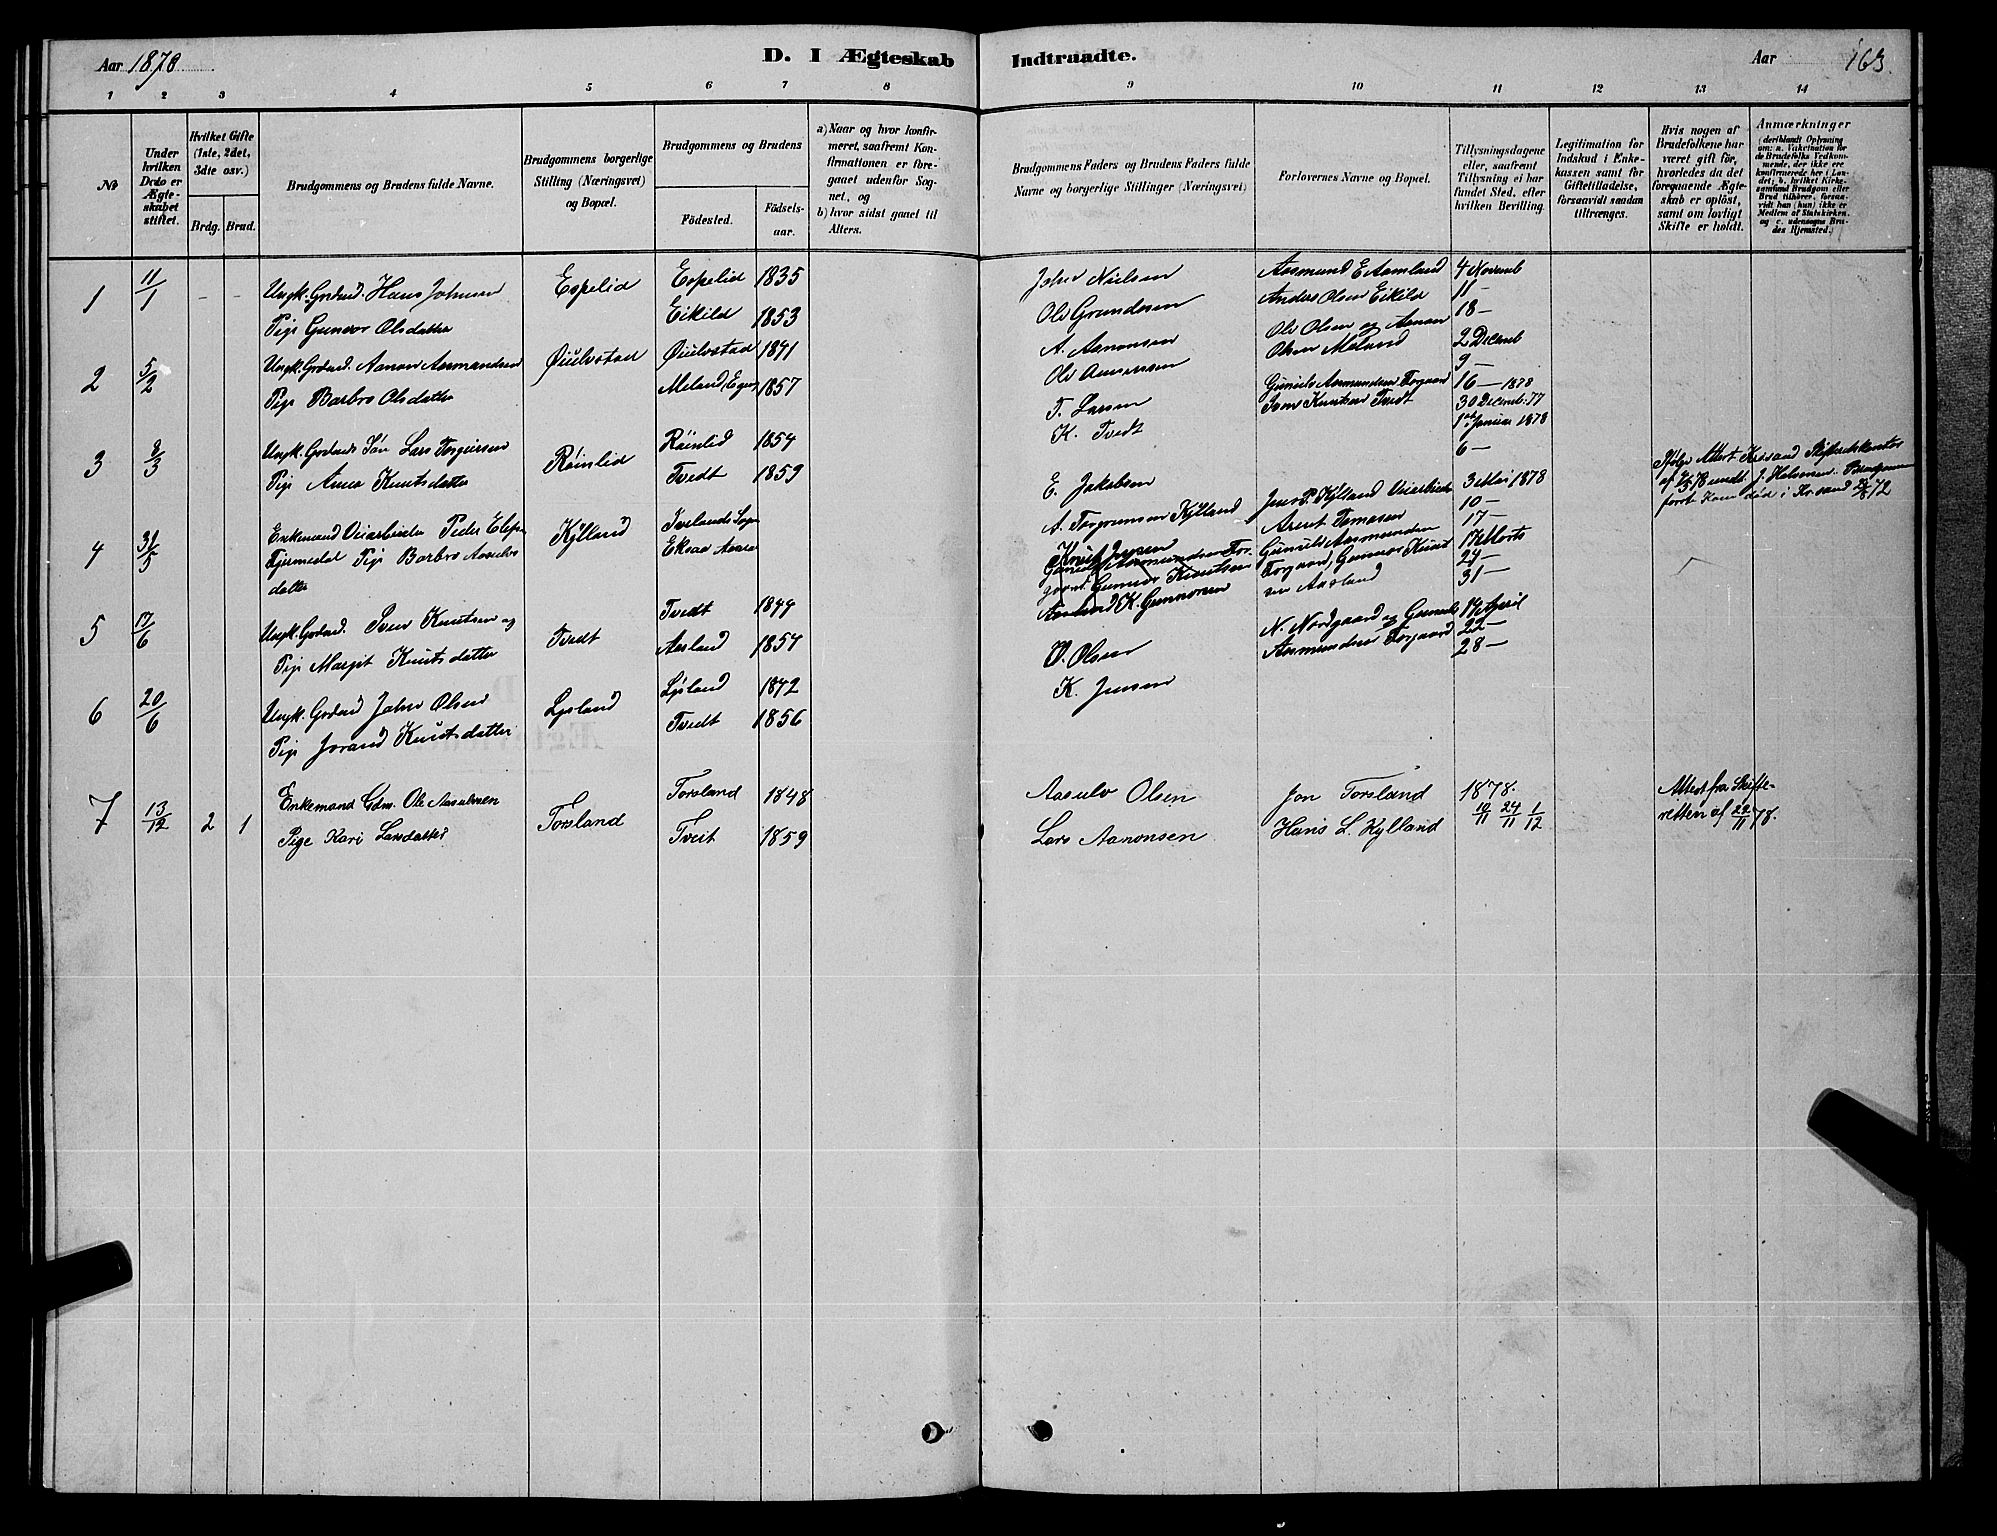 Aar 1878
D. I Ægteskab
Indtraadte.
Aar 163.
1 2 3 4 5 6 7 8
9 10 11 12 13 14
No
Under hvilken Dato er Ægteskabet stiftet.
Hvilket Gifte (1ste, 2det, 3die osv.)
Brdg. Brud.
Brudgommens og Brudens fulde Navne.
Brudgommens borgerlige Stilling (Næringsvei) og Bopæl.
Brudgommens og Brudens
Födested.
Födselsaar.
a) Naar og hvor konfirmeret, saafremt Konfirmationen er foregaaet udenfor Sognet, og
b) hvor sidst gaaet til Alters.
Brudgommens Faders og Brudens Faders fulde Navne og borgerlige Stillinger (Næringsvei)
Forlovernes Navne og Bopæl.
Tillysningsdagene eller, saafremt Tillysning ei har fundet Sted, efter hvilken Bevilling.
Legitimation for Indskud i Enkekassen samt for Giftetilladelse, forsaavidt saadan tiltrænges.
Hvis nogen af Brudefolkene har været gift för, hvorledes da det foregaaende Ægteskab er oplöst, samt om lovligt Skifte er holdt.
Anmærkninger
(deriblandt Oplysning om: a. Vakcination for de Brudefolks Vedkommende, der ikke ere konfirmerede her i Landet; b. hvilket Kirkesamfund Brudgom eller Brud tilhörer, forsaavidt han (hun) ikke er Medlem af Statskirken, og c. udensogns Brudes Hjemsted.)
1 11/1 - - Ungk. Grdmd. Hans Johnsen Espelid Espelid 1835
Pige Gunvor Olsdatter Eikild 1853
2 5/2 Ungk. Grdmd. Aanon Aasmundsen Øiulvstad Øiulvstad 1841
Pige Barbro Olsdatter Meland, 1857
3 2/3 Ungk. Grdmds Søn Lars Torgiersen Röinlid Röinlid 1854
Pige Anna Knutsdatter Tvedt 1859
4 31/5 Enkemand Veiarbeider Peder
Pige Barbro
datter
Kylland Ivelands Sogn
5 17/6 Ungk. Grdmd. Sven Knutsen og Tvedt Tvedt 1844
Pige Margit Knutsdatter Aasland 1854
6 20/6 Ungk. Grdmd John Olsen Lysland Lysland 1842
Pige Jorand Knutsdatter Tvedt 1856
7 13/12 2 1 Enkemand Gdm. Ole Aasulvsen Torsland Torsland 1848
Pige Kari Larsdatter Tveit 1859
John Nielsen
Ole Grundesen
A. Aanonsen
Ole
T. Larsen
K. Tvedt
E. Jakobsen
A. Torgrimsen Kylland
Knut Jensen
K. Gunnarsen
O. Olsen
K. Jensen
Aasulv Olsen
Lars Aanonsen
Aasmund E Aamland
Anders Olsen Eikild
Ole Olsen og Aanon
Olsen Meland
Gunuld Aasmundsen Torgaard
Sven Knutsen Tvedt
Jens P. Kylland Veiarbeider
Arent Tomasen
Gunuld Aasmundsen
Torgaard, Gunnar Knut
sen Aasland
N. Nordgaard og Gunuld
Aasmundsen Torgaard
Jon Torsland
Hans L. Kylland
4 Novemb
11 -
18 -
2 Decemb
9 -
16 - 1878
30 Decemb. 77
1ste Januar 1878
6 -
3 Mai 1878
10 -
17 -
17 Marts
24 -
31 -
14 April
22 -
28 -
1878.
10/11 24/11 1/12
Ifølge Attest Krsand
af 78
först Kone död i Krsand 72
Attest fra Skifte-
retten af 22/11 78.